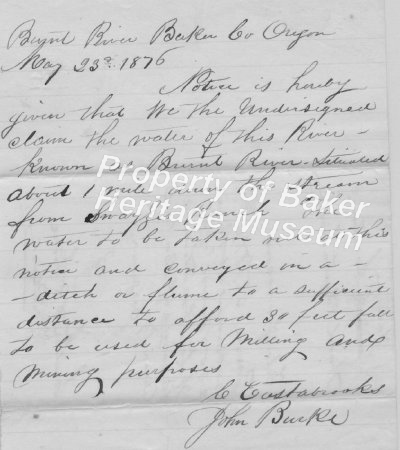 Burnt River Baker Co Oregon
May 23d 1876
Notice is hereby
given that We the Undersigned
claim the water of this River -
known as Burnt River Situated
about 1 mile the stream
from
water to be taken this
notice and conveyed in a -
- ditch or flume to a sufficient
distance to afford 30 feet fall
to be used for Milling and
Mining purposes
C Eastabrooks
John Burke
Property of Baker
Heritage Museum